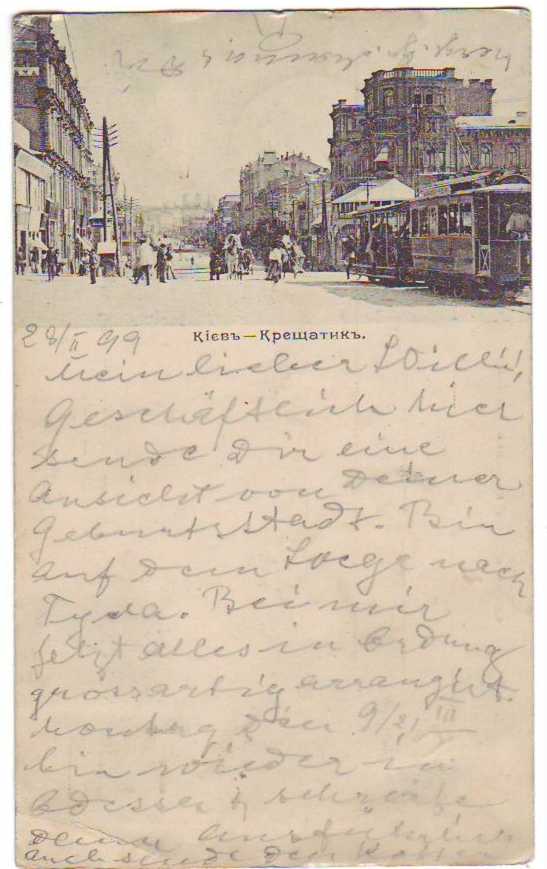 28/II 99
Кіевъ — Крещатикъ.
Mein lieber Willi,
Geschäftlich hier
sende Dir eine
Ansicht von Deiner
Geburtsstadt. Bin
auf dem Wege nach
Bei mir
jetzt alles in Ordnung
grossartig arrangirt.
Montag den 9/21 III
bin wieder in
Odessa & schreibe
dann
auch sende den